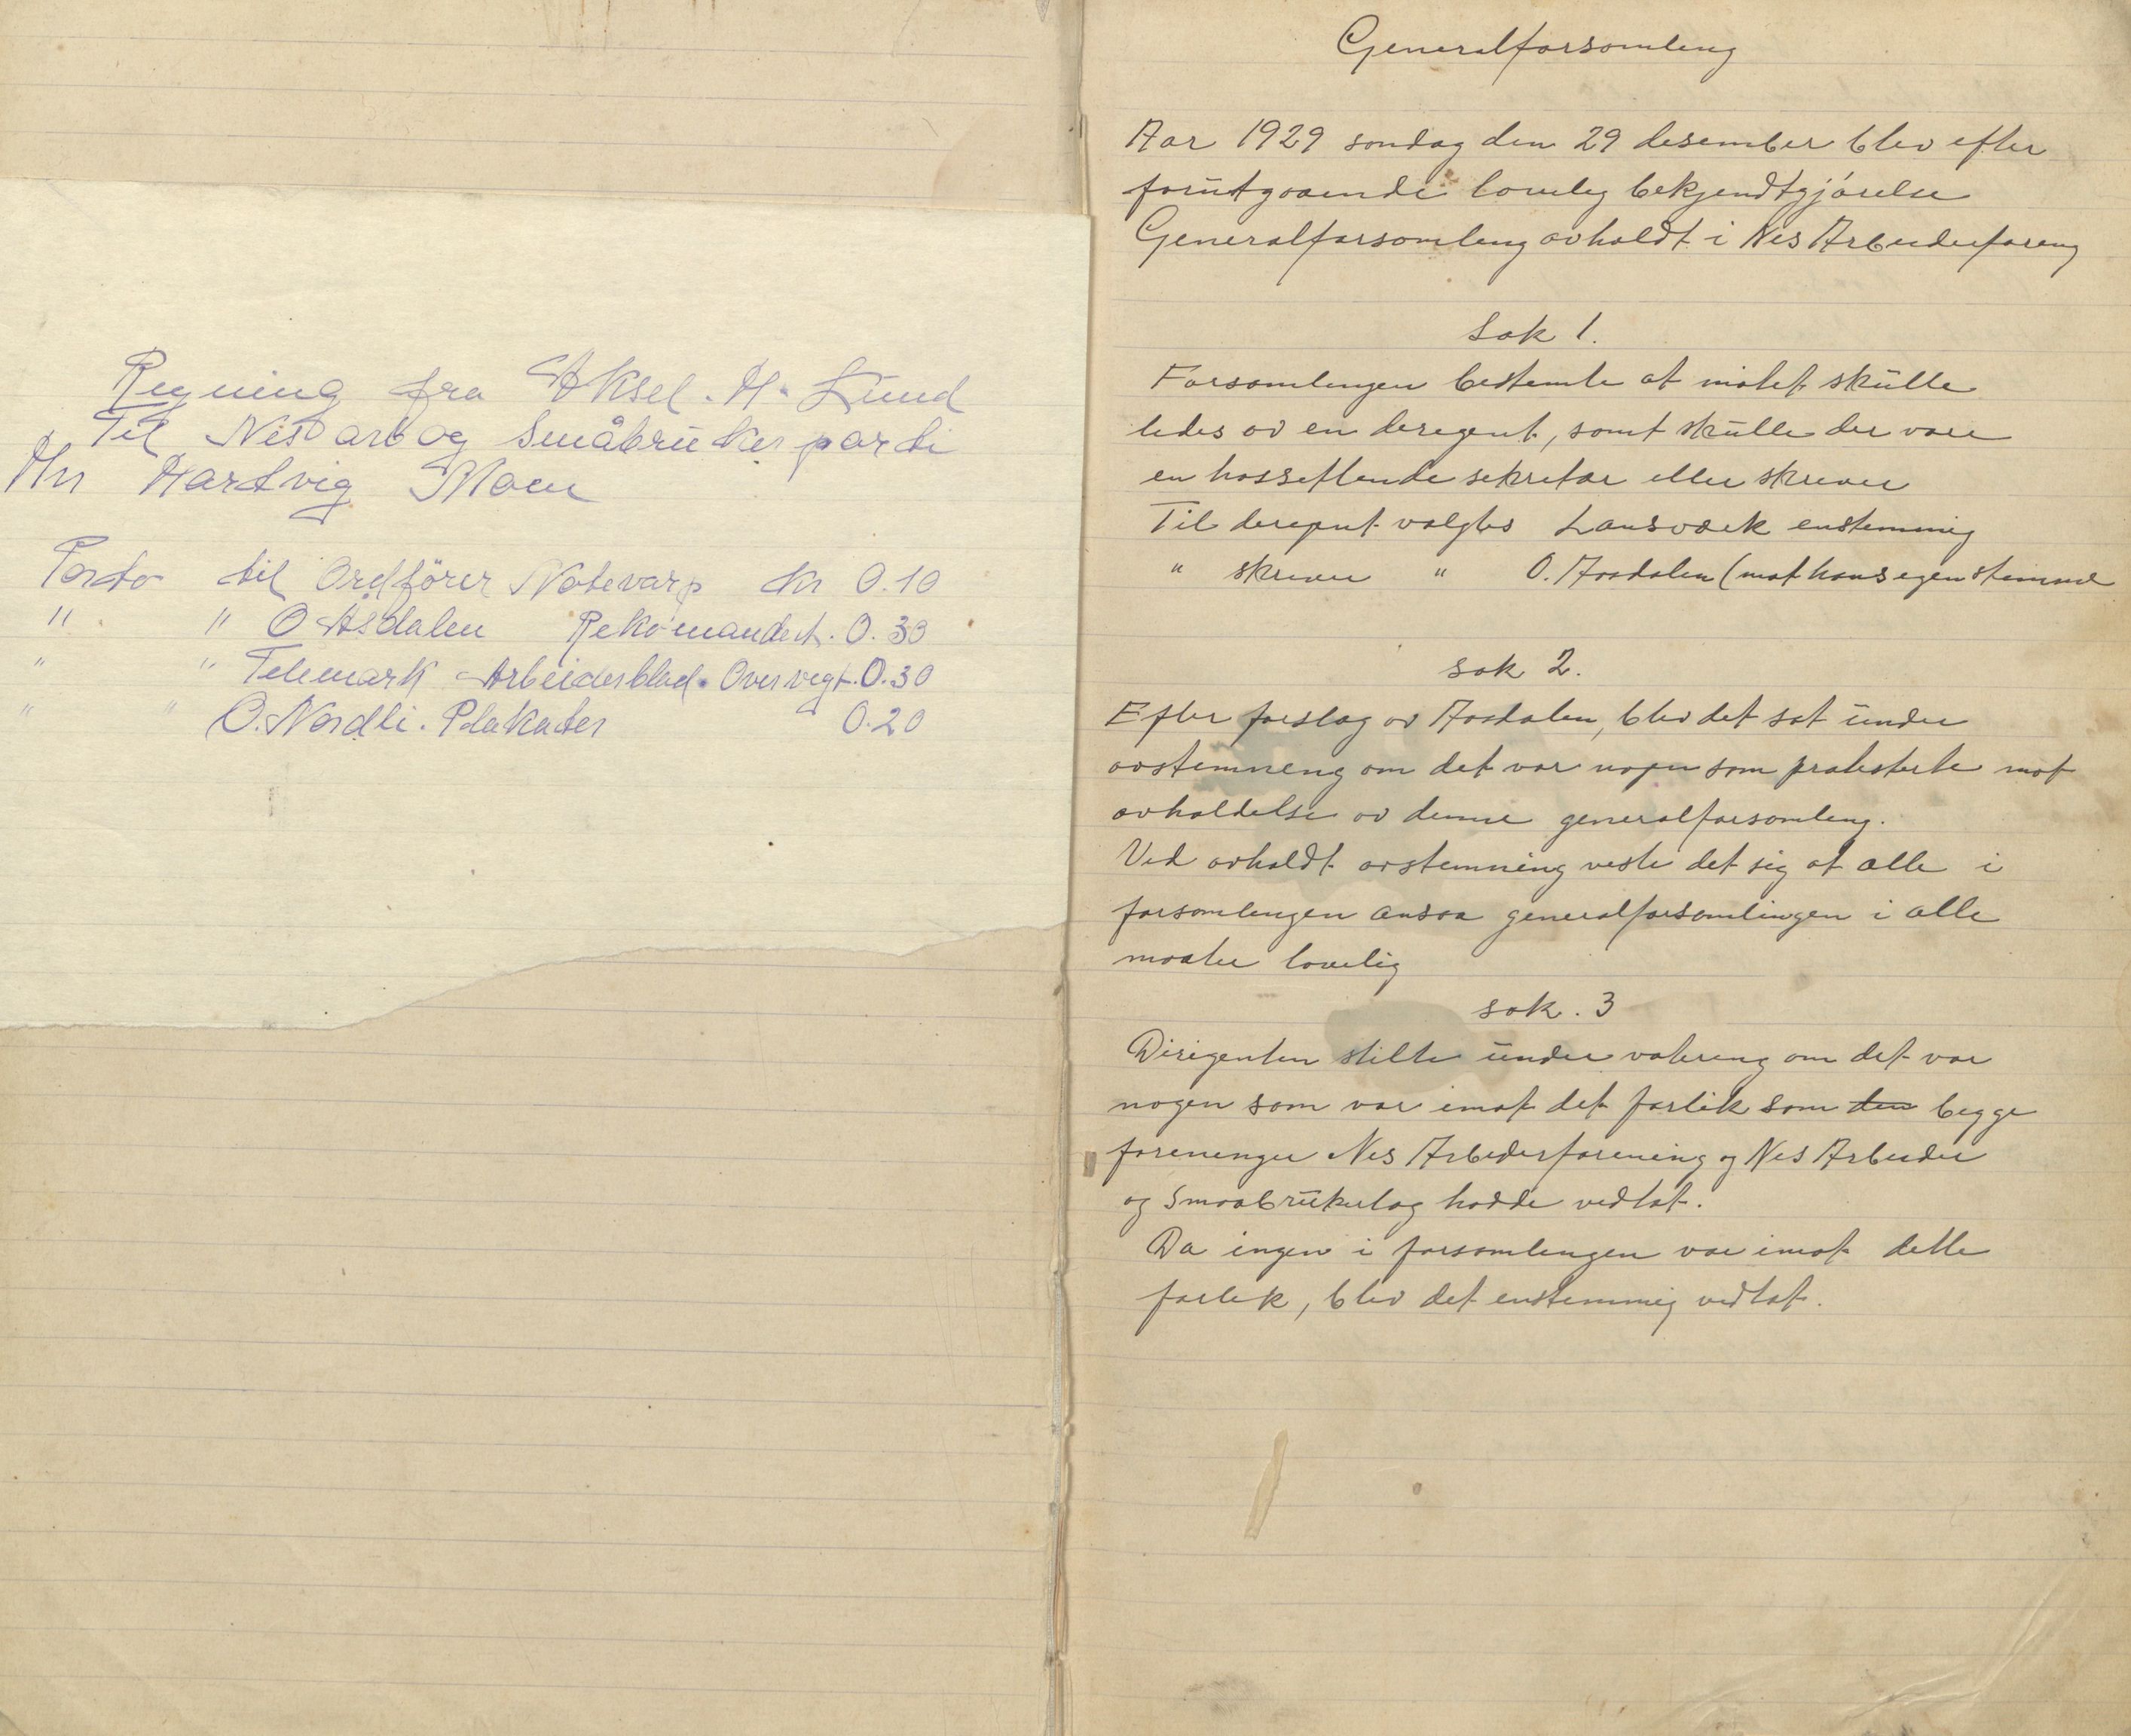 Regning fra Aksel. H. Lund
Til Nes arb og Småbruker parti
Hr Hartvig Moen
Porto til Ordförer Notevarp Kr 0.10
" " O Åsdalen Rekomandert. 0.30
" " Telemark Arbeiderblad. Overvegt. 0.30
" " O. Nordli. Plakater 0.20
Generalforsamling
Aar 1929 søndag den 29 desember blev efter
forutgaaende lovlig bekjendtgjørelse
Generalforsamling avholdt i Nes Arbeiderforeng
Sak 1.
Forsamlingen bestemte at møtet skulle
ledes av en deregent, samt skulle der være
en hossittende sekretær eller skriver
Til deregent valgtes Lansværk enstemmig
" skriver " O. Aasdalen (mot hans egen stemme
sak 2.
Efter forslag av Aasdalen, blev det sat under
avstemneng om det var nogen som protesterte mot
avholdelse av denne generalforsamling.
Ved avholdt avstemning viste det sig at alle i
forsamlingen ansaa generalforsamlingen i alle
maater lovlig
sak. 3
Dirigenten stilte under votering om det var
nogen som var imot det forlik som den begge
foreninger Nes Arbeiderforening og Nes Arbeider
og Smaabrukerlag hadde vedtat.
Da ingen i forsamlingen var imot dette
forlik, blev det enstemmig vedtat.